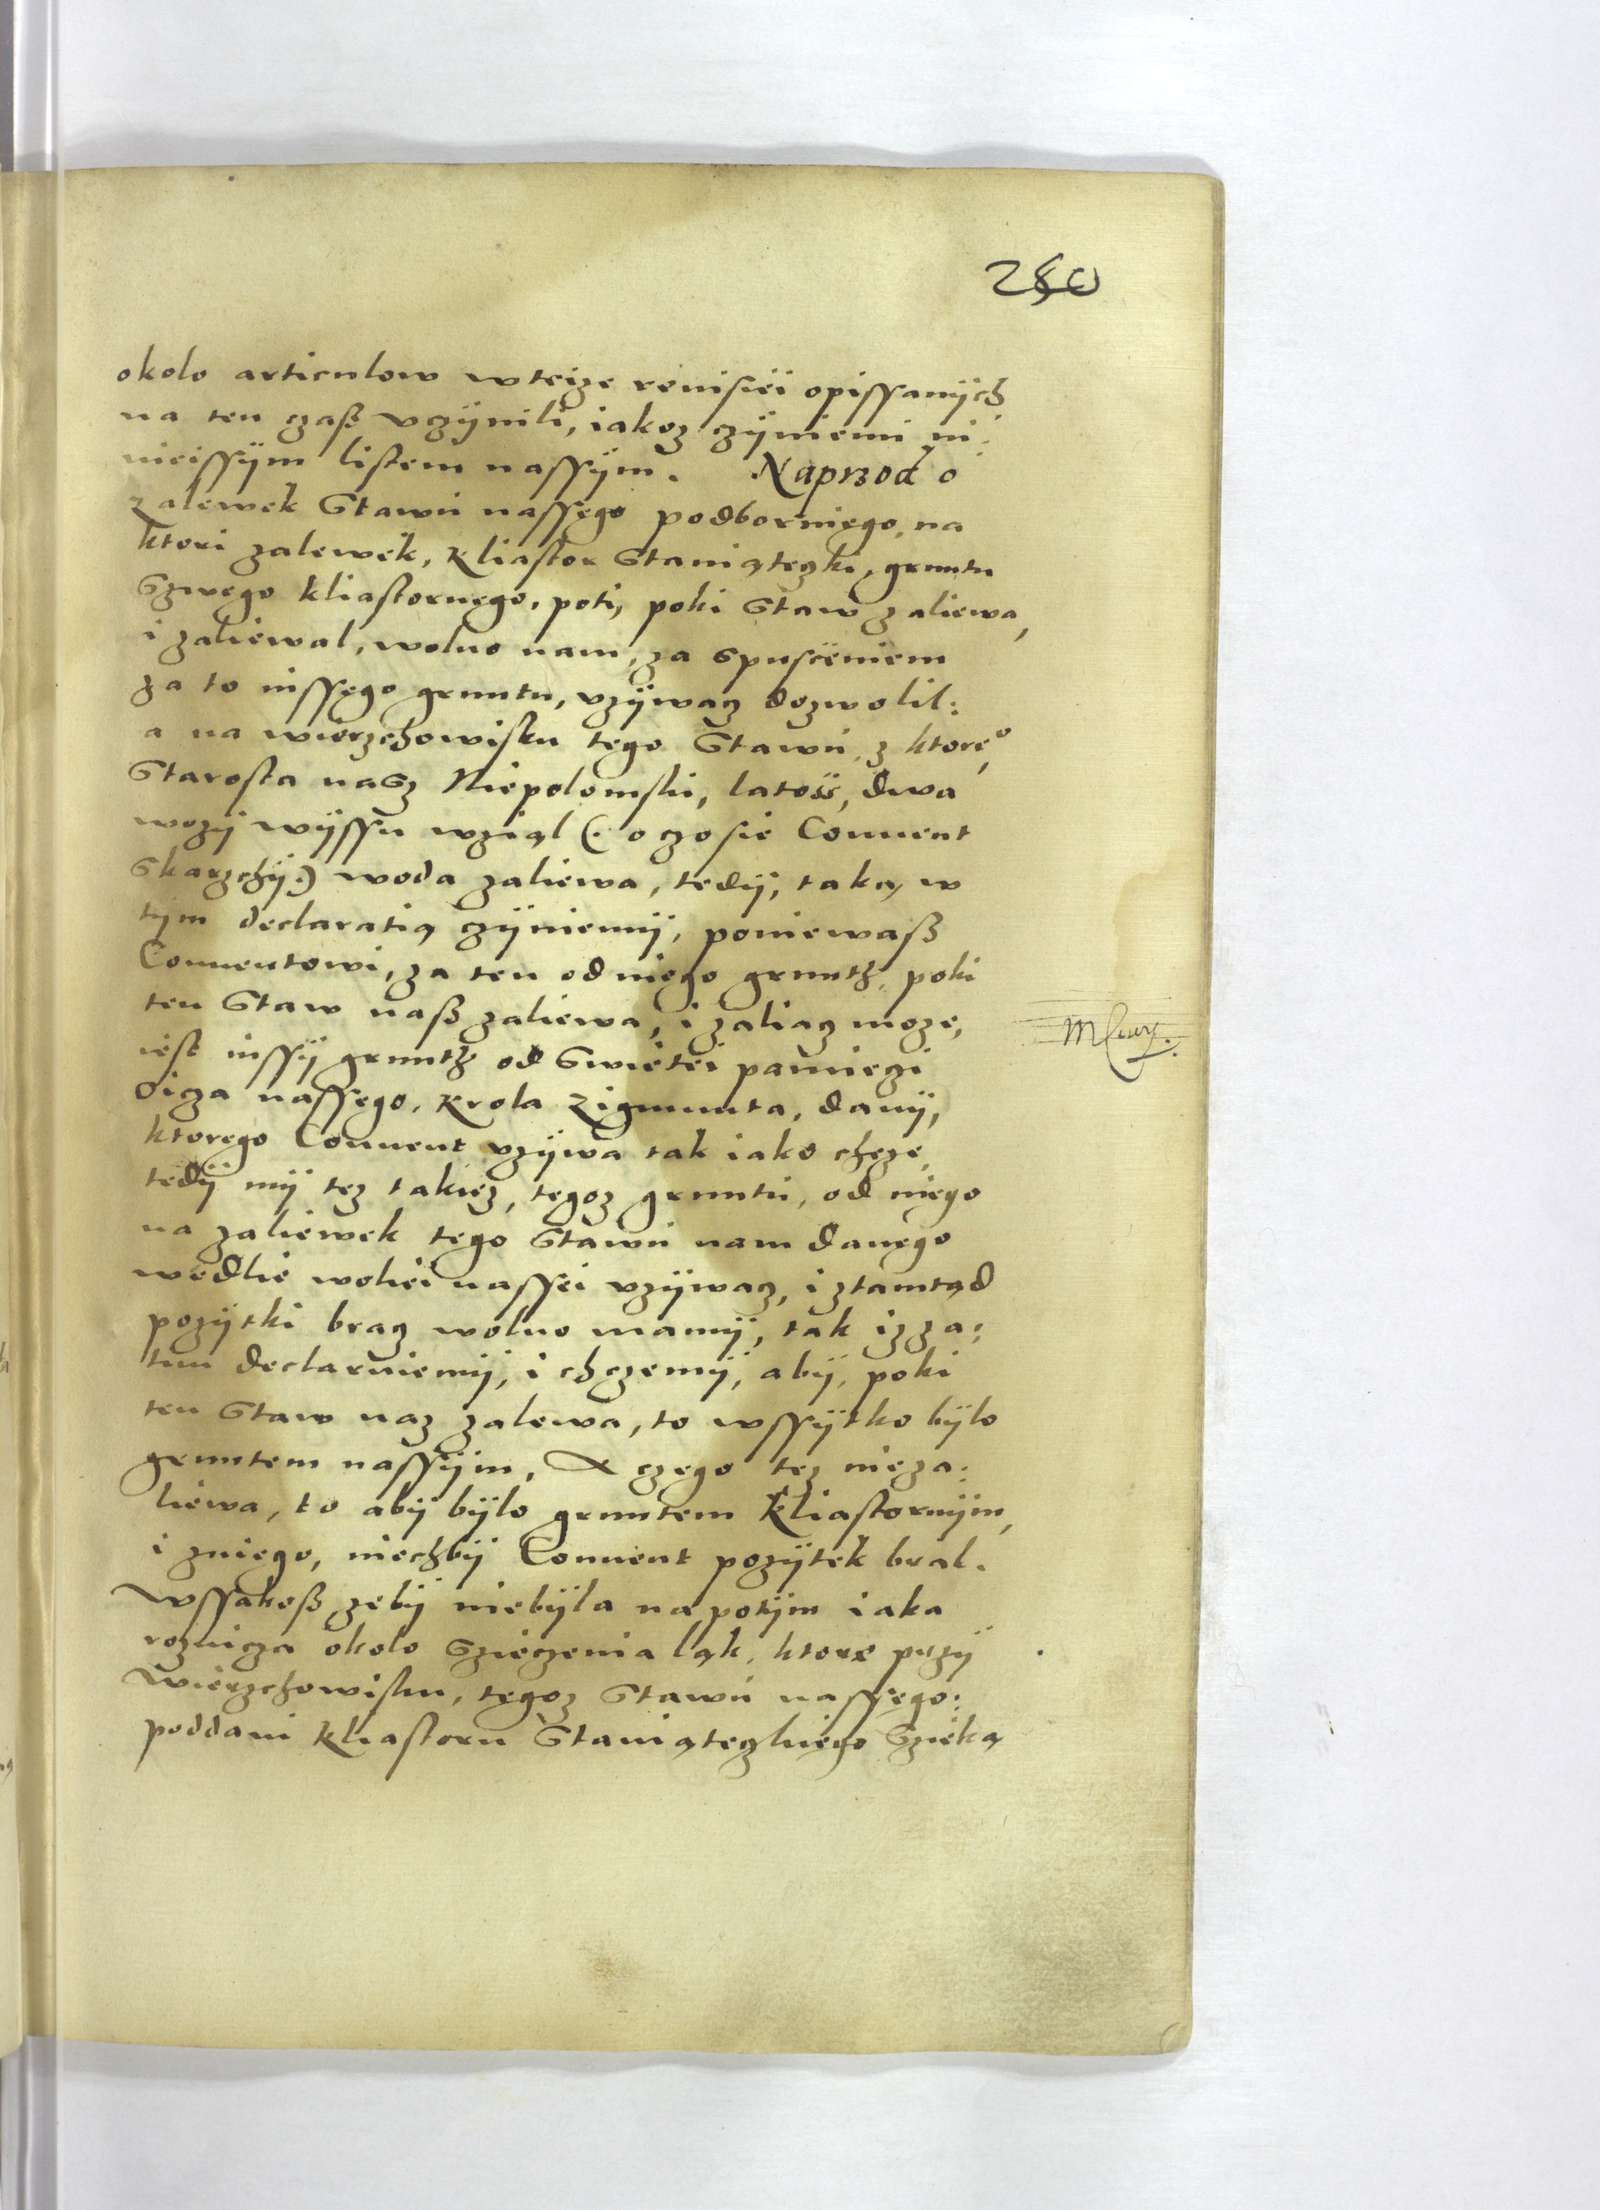 280
okolo articulow wteize reuisiei opissanÿch
na ten czaß vczÿnili, iakoz czÿniemi ni:
nieissÿm listem nassÿm. Naprzod o
zalewek Stawu nassego podborniego, na
ktori zalewek, kliastor Staniąteczki, gruntu
Szwego kliastornego, poti, poki Staw zaliewa,
i zaliewal, wolno nam, za spusceniem
za to inssego gruntu, vzÿwacz dozwolil:
a na wierzchowisku tego Stawu, z ktoreº
Starosta nasz Niepolomski, latoss, dwa
wozÿ wÿssu wziąl (: o czo sie Conuent
Skarzchÿ:) woda zaliewa, tedÿ, taką w
tÿm declaratią czÿniemÿ, poniewaß
Conuentowi, za ten od niego gruntz, poki
ten Staw naß zaliewa, i zaliacz moze,
iest inssÿ gruntz od Swietei pamieczi
Oicza nassego, krola Zigmunta, danÿ,
ktorego Conuent vzÿwa tak iako chcze,
tedÿ mÿ tez takiez, tegoz gruntu, od niego
na zaliewek tego Stawu nam danego
wedlie woliei nassei vzÿwacz, i ztamtąd
pozÿtki bracz wolno mamÿ, tak izza:
tim declaruiemÿ, i chczemÿ, abÿ, poki
ten Staw naz zalewa, to wssÿtko bÿlo
gruntem nassÿm, A czego tez nieza:
liewa, to abÿ bÿlo gruntem kliastornÿm,
i zniego, niechbÿ Conuent pozÿtek bral.
Wssakoß zebÿ niebÿla na potÿm iaka
roznicza okolo Szieczenia ląk, ktore przÿ
wierzchowisku, tegoz Stawu nassego:
poddani kliastoru Staniąteczkiego Szieką